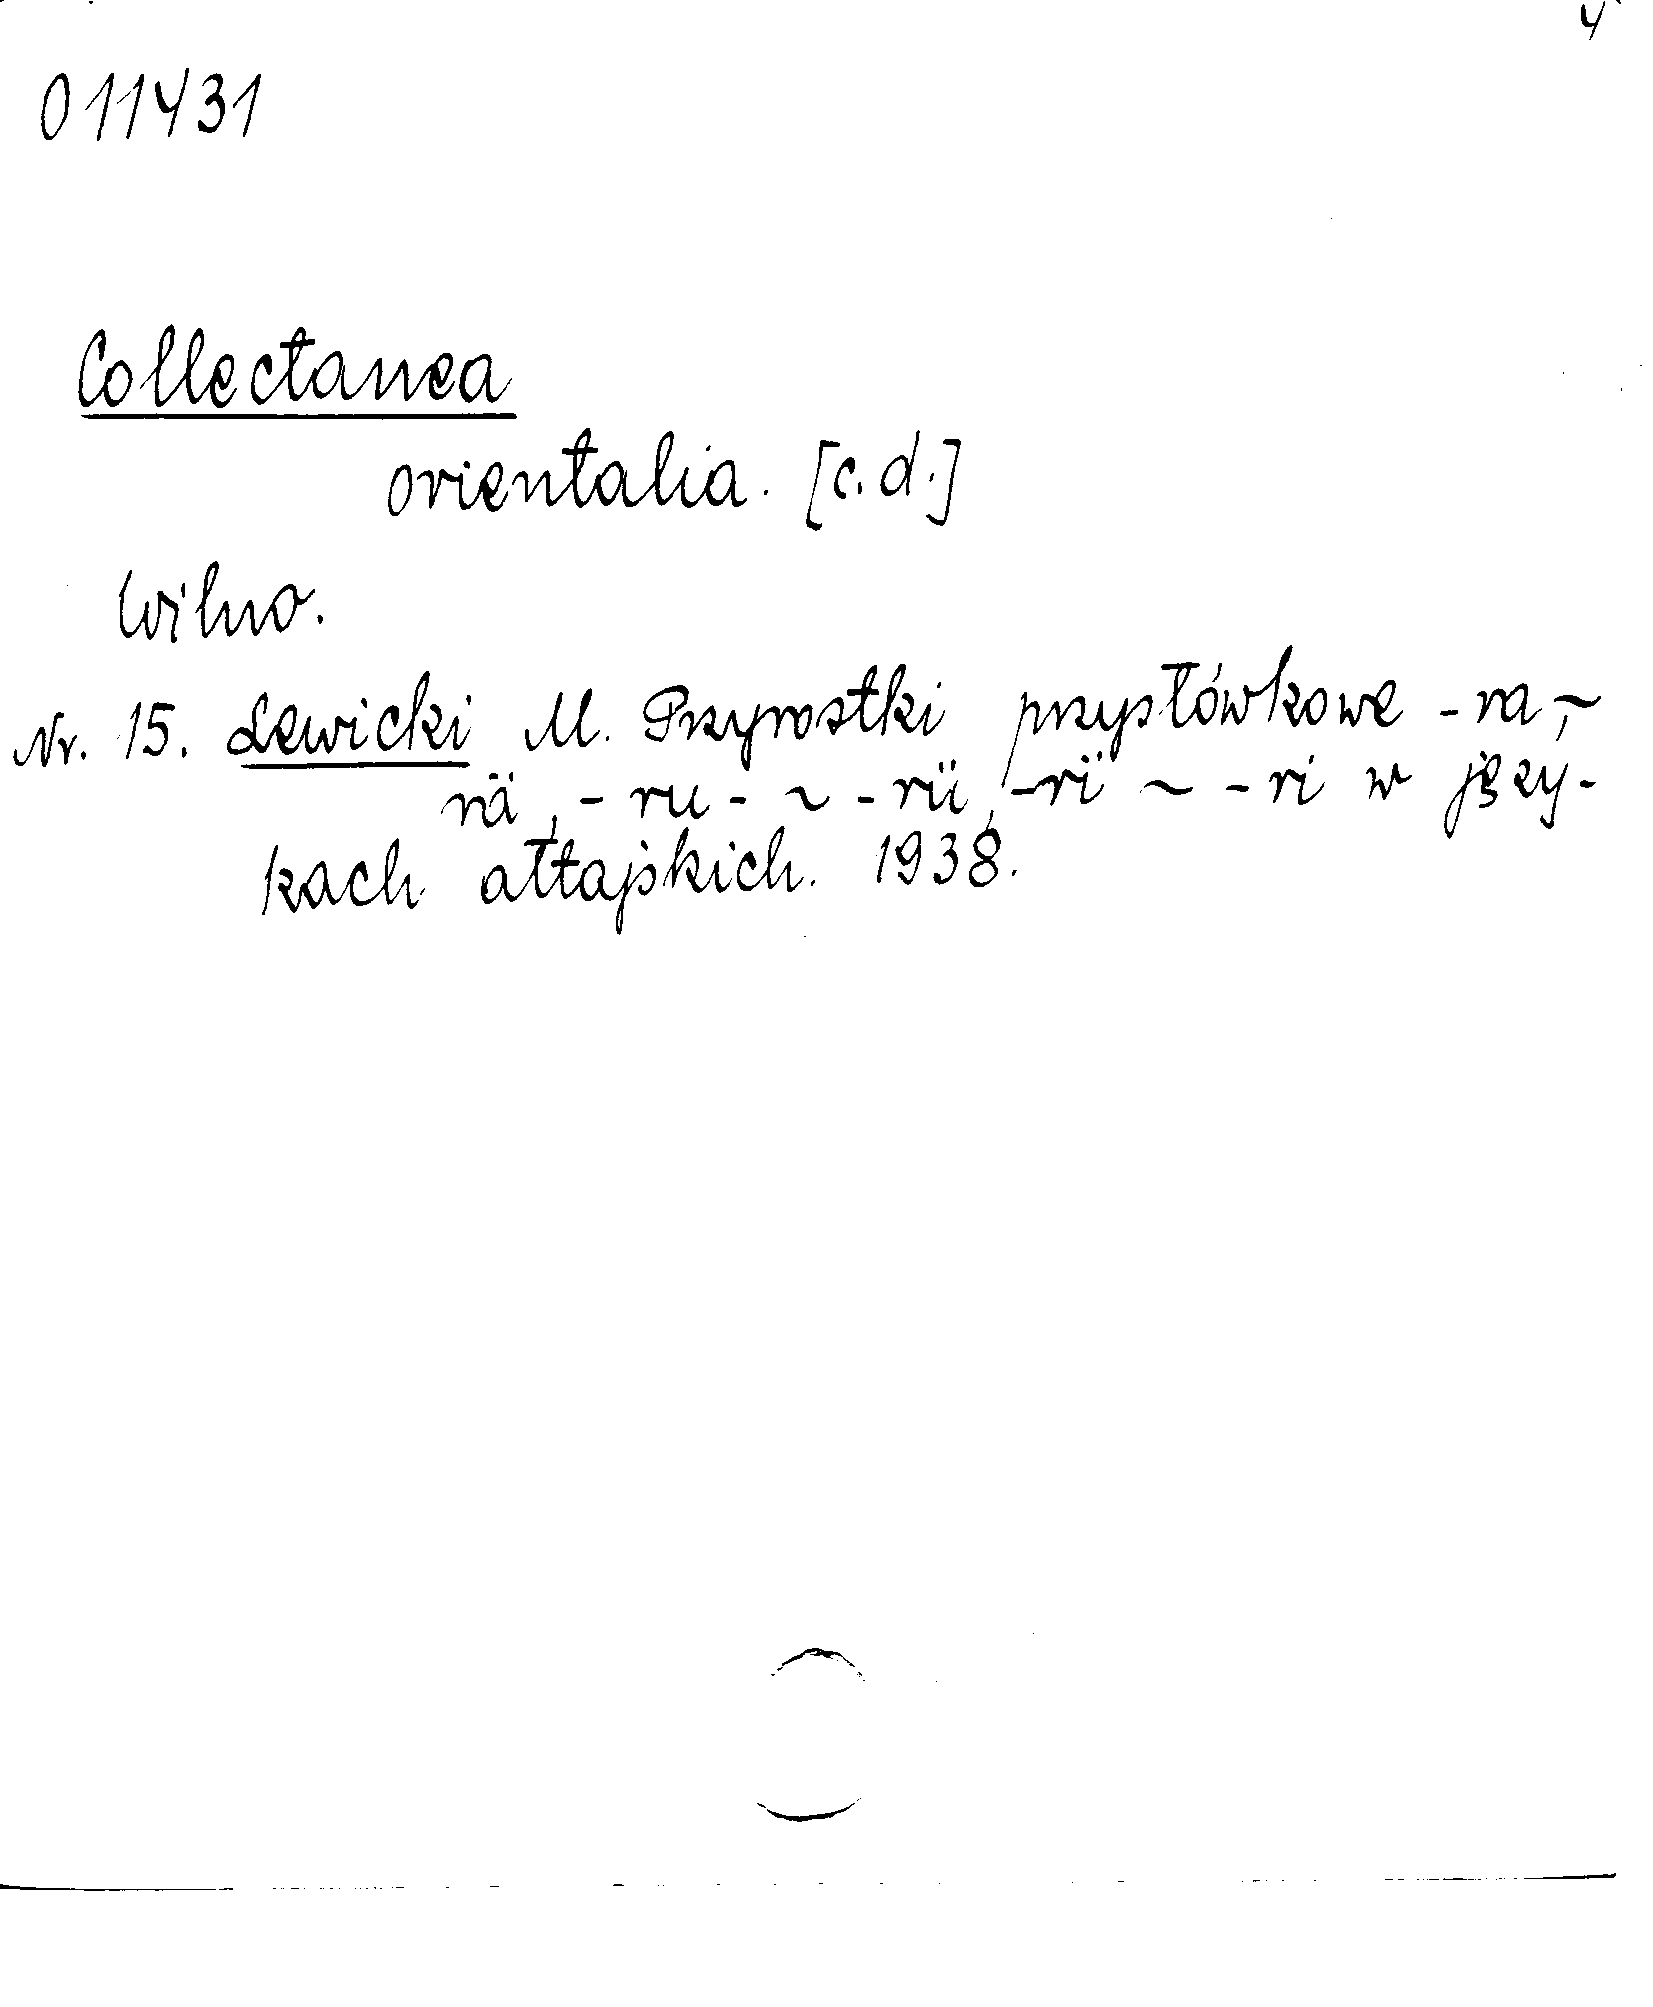 4
011431
Collectanea
orientalia. [c.d.]
Wilno.
Nr. 15. Lewicki M. Przyrostki przysłówkowe -ra, ~
rä, -ru- ~ -rü, -rï ~ -ri w języ-
kach ałtajskich. 1938.